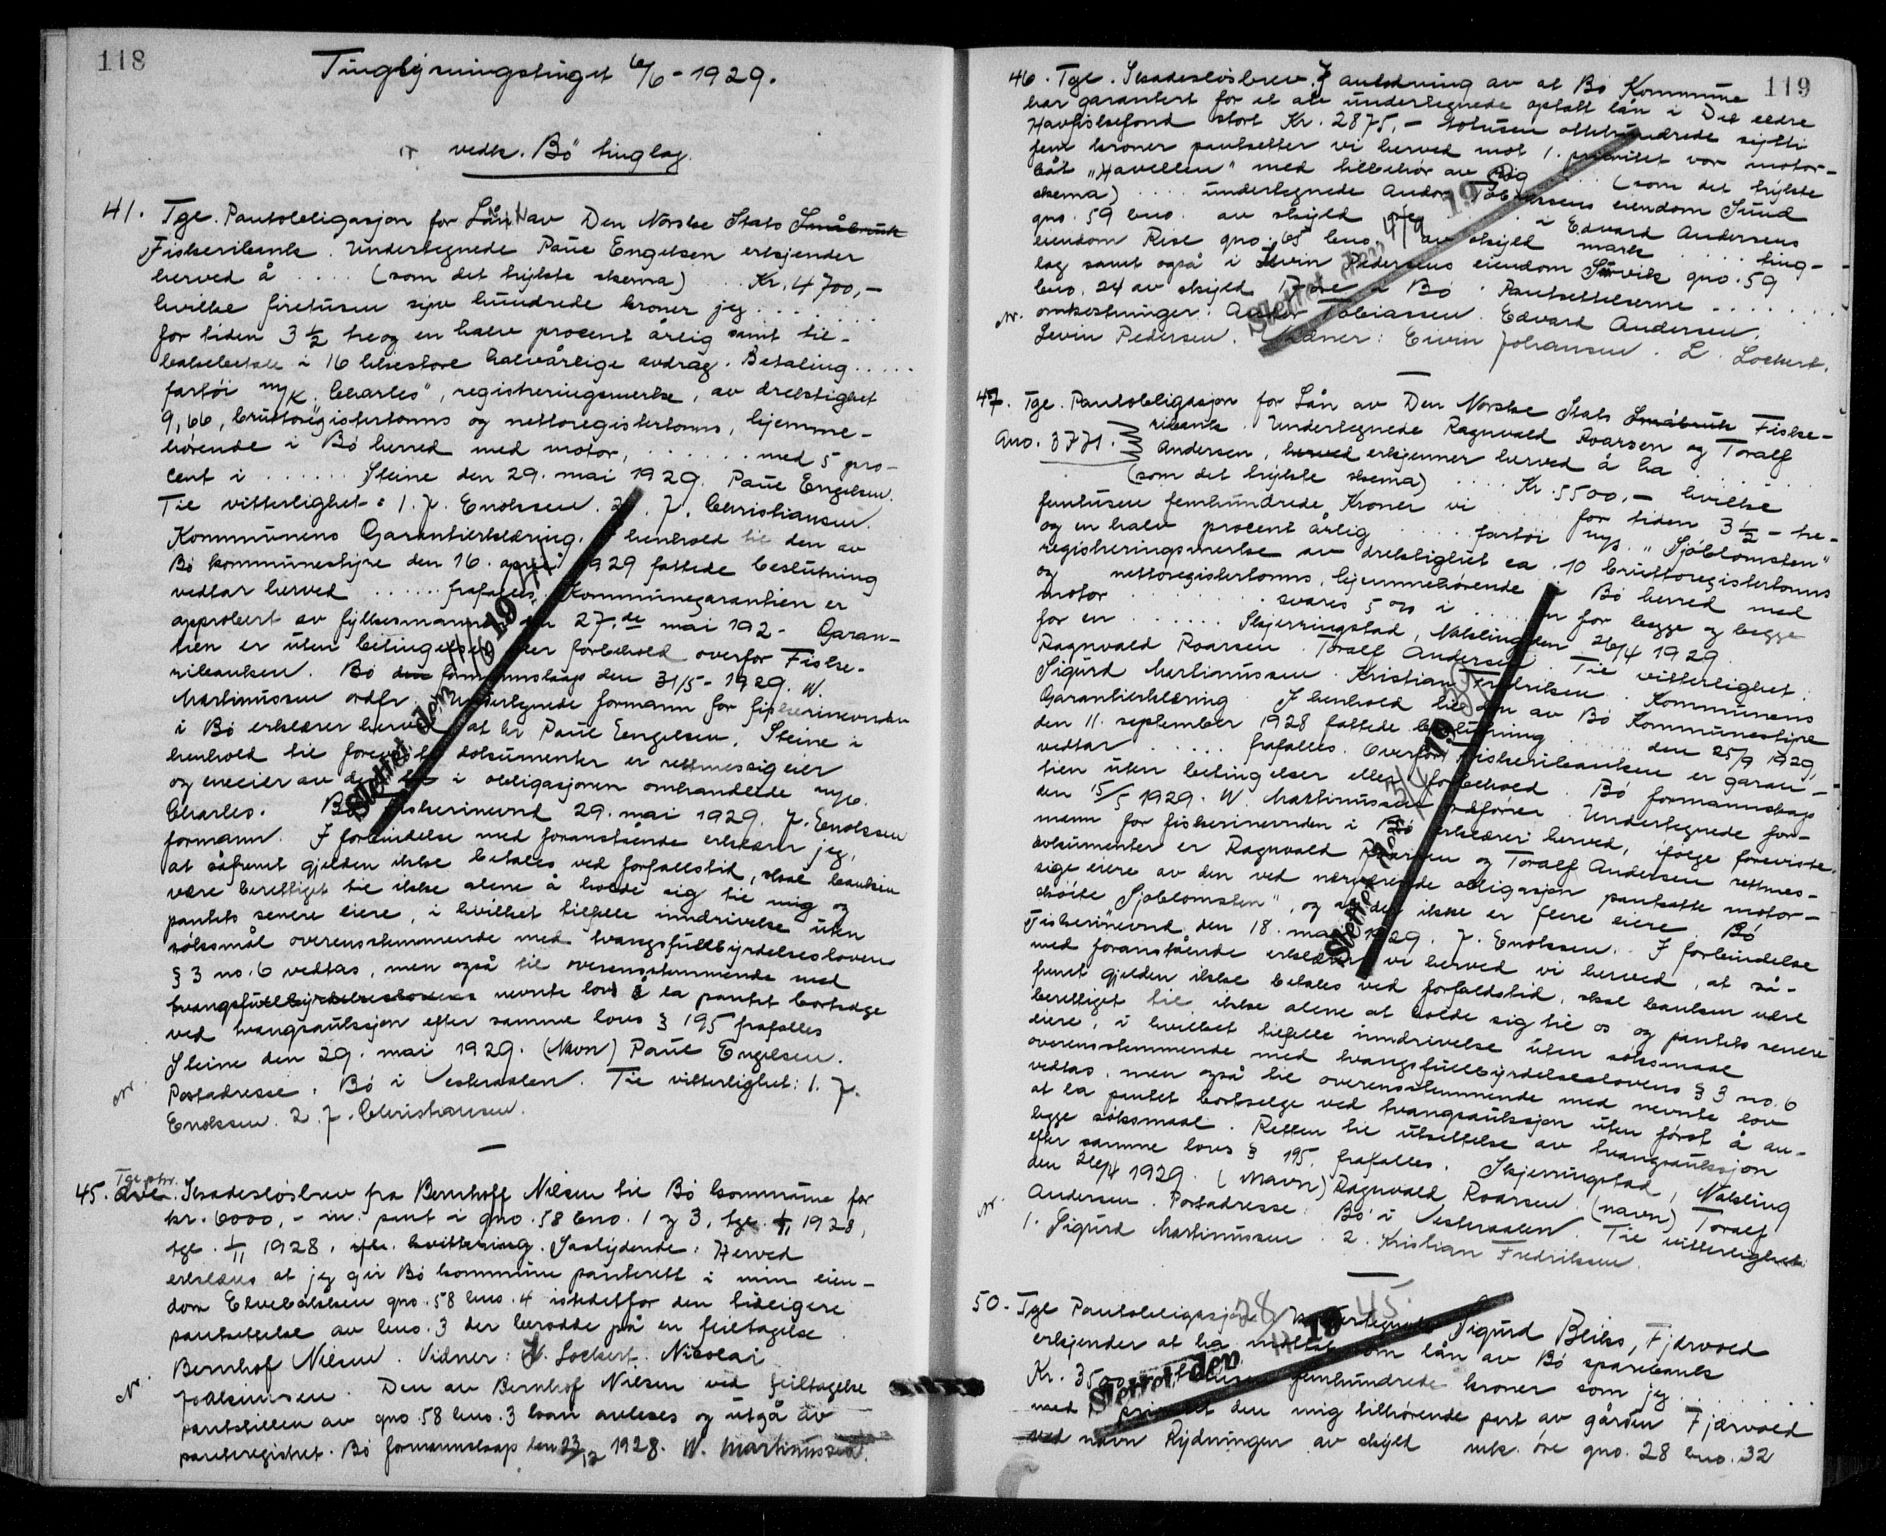 118
Tinglysningstinget 6/6 - 1929.
vedk. Bø tinglag.
41. Tgl. Pantobligasjon for Lån av Den Norske Stats Småbruk
Fiskeribank. Undertegnede Paul Engelsen erkjender
herved å .... (som det trykte skema) .. Kr. 4700,-
hvilke firetusen syv hundrede kroner jeg ......
for tiden 3 1/2 tre og en halv procent årlig samt til-
bakebetale i 16 likestore halvårlige avdrag. Betaling .....
fartøi m/k. "Charles", registreringsmerke, av drektighet
9,66, bruttoregistertonns og nettoregistertonns, hjemme-
hørende i Bø herred med motor, ....... med 5 pro-
cent i ...... Steine den 29. mai 1929. Paul Engelsen.
Til vitterlighet: 1. J. Enoksen. 2. J. Christiansen.
Kommunens Garantierklæring. I henhold til den av
Bø kommunestyre den 16. april 1929 fattede beslutning
vedtar herved ...... frafalles. Kommunegarantien er
approbert av fylkesmannen den 27.de mai 192- Garan-
tien er uten betingelser eller forbehold overfor Fiske-
ribanken. Bø formannskap den 31/5 - 1929. W.
Martinussen ordfr. Undertegnede formann for fiskerinevnden
i Bø erklærer herved at hr Paul Engelsen, Steine i
henhold til foreviste dokumenter er rettmessig eier
og eneeier av den i obligasjonen omhandlede m/k.
Charles. Bø fiskerinevnd 29. mai 1929. J. Enoksen
formann. I forbindelse med foranstående erklærer jeg,
at såfremt gjelden ikke betales ved forfallstid, skal banken
være berettiget til ikke alene å holde sig til mig og
pantets senere eiere, i hvilket tilfelle inndrivelse uten
søksmål overensstemmende med tvangsfullbyrdelsesloven
§ 3 no. 6 vedtas, men også til overensstemmende med
tvangsfullbyrdelseslovens nevnte lov å la pantet bortselge
ved tvangsauksjon efter samme lovs § 195 frafalles
Steine den 29. mai 1929. (Navn) Paul Engelsen.
Postadresse: Bø i Vesteraalen. Til vitterlighet: 1. J.
Enoksen. 2. J. Christiansen.
Slettet den 11/6 19
45. Skadesløsbrev fra Bernhoff Nilsen til Bø kommune for
kr. 6000,- m. pant i gno. 58 bno. 1 og 3, tgl. 1/11 1928,
tgl. 1/11 1928. Saalydende: Herved
erklæres at jeg gir Bø kommune panterett i min eien-
dom Elvebakken gno. 58 bno. 4 istedetfor den tidligere
pantsettelse av bno. 3 der berodde på en feiltagelse.
Bernhof Nilsen. Vidner: L. Lockert. Nicolai
Joakimsen. Den av Bernhof Nilsen ved feiltagelse
pantstillen av gno. 58 bno. 3 kan avleses og utgå av
panteregistret. Bø formannskap den 23/12 1928. W. Martinussen.
119
46. Tgl. Skadesløsbrev. I anledning av at Bø Kommune
har garantert for et av undertegnede optatt lån i Det eldre
Havfiskefond stort Kr. 2875,- totusen ottehundrede sytti
fem kroner pantsetter vi herved mot 1. prioritet vor motor-
båt "Havellen" med tilbehør av ... (som det trykte
skema) .... undertegnede Andor Tobiassens eiendom Sund
gno. 59 bno. av skyld ... i Edvard Andersens
eiendom Rise gno. 65 bno. av skyld mark ..... ting-
lag samt også i Levin Pedersens eiendom Survik gno. 59
bno. 24 av skyld 17 øre i Bø. Pantsettelserne .......
omkostninger. Andor Tobiassen. Edvard Andersen.
Levin Pedersen. Vidner: Erwin Johansen. L. Lockert.
Slettet den 4/9 19
47. Tgl. Pantobligasjon for Lån av Den Norske Stats Småbruk Fiske-
Ano. 3771. ribank. Undertegnede Ragnvald Roarsen og Toralf
Andersen, herved erkjenner herved å ha .....
(som det trykte skema) .... Kr. 5500,- hvilke
femtusen femhundrede Kroner vi .... for tiden 3 1/2 - tre-
og en halv procent årlig .... fartøi m/k. "Sjöblomsten"
registreringsmerke av drektighet ca. 10 bruttoregistertonns
og nettoregistertonns, hjemmehørende i Bø herred med
motor ....... svares 5 o/o i ..... en for begge og begge
for en ...... Skjerringstad, Nykling den 26/4 1929.
Ragnvald Roarsen. Toralf Andersen. Til vitterlighet:
Sigurd Martinussen. Kristian Fredriksen. Kommunens
Garantierklæring. I henhold til den av Bø Kommunestyre
den 11. september 1928 fattede beslutning ..... den 25/9 1929,
vedtar ..... frafalles. Overfor Fiskeribanken er garan-
tien uten betingelser eller forbehold. Bø formannskap
den 15/5 1929. W. Martinussen ordfører. Undertegnede for-
mann for fiskerinevnden i Bø erklærer herved, ifølge foreviste
dokumenter er Ragnvald Roarsen og Toralf Andersen rettmes-
sige eiere av den ved nærværende obligasjon pantsatte motor-
skøite "Sjöblomsten", og at der ikke er flere eiere. Bø
Fiskerinevnd den 18. mai 1929. J. Enoksen. I forbindelse
med foranstående erklærer vi herved vi herved, at så-
fremt gjelden ikke betales ved forfaldstid, skal banken være
berettiget til ikke alene at holde sig til os og pantets senere
eiere, i hvilket tilfelle inndrivelse uten søksmaal
overensstemmende med tvangsfullbyrdelseslovens § 3 no. 6
vedtas, men også til overensstemmende med nevnte lov
at la pantet bortselge ved tvangsauksjon uten først å an-
legge søksmaal. Retten til utsettelse av tvangsauksjon
efter samme lovs § 195 frafalles. Skjerringstad, Nykling
den 26/4 1929. (Navn) Ragnvald Roarsen. (navn) Toralf
Andersen. Postadresse: Bø i Vesteraalen. Til vitterlighet:
1. Sigurd Martinussen. 2. Kristian Fredriksen.
Slettet den 19
50. Tgl Pantobligasjon. Undertegnede Sigurd Beiks, Fjærvoll
erkjender at ha mottat som lån av Bø sparebank
Kr. 3500,- femhundrede kroner som jeg ......
med 1. prioritet den mig tilhørende part av gården Fjærvoll
ved navn Rydningen av skyld mk. øre gno. 28 bno. 32
Slettet den 28/11 1945.